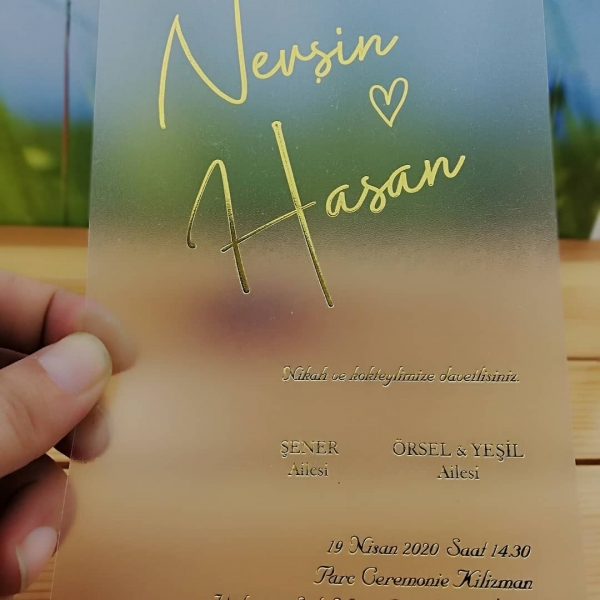 Nevşin
Hasan
Nikah ve kokteylimize davetlisiniz.
ŞENER ÖRSEL & YEŞİL
Ailesi Ailesi
19 Nisan 2020 Saat 14.30
Parc Ceremonie Kilizman